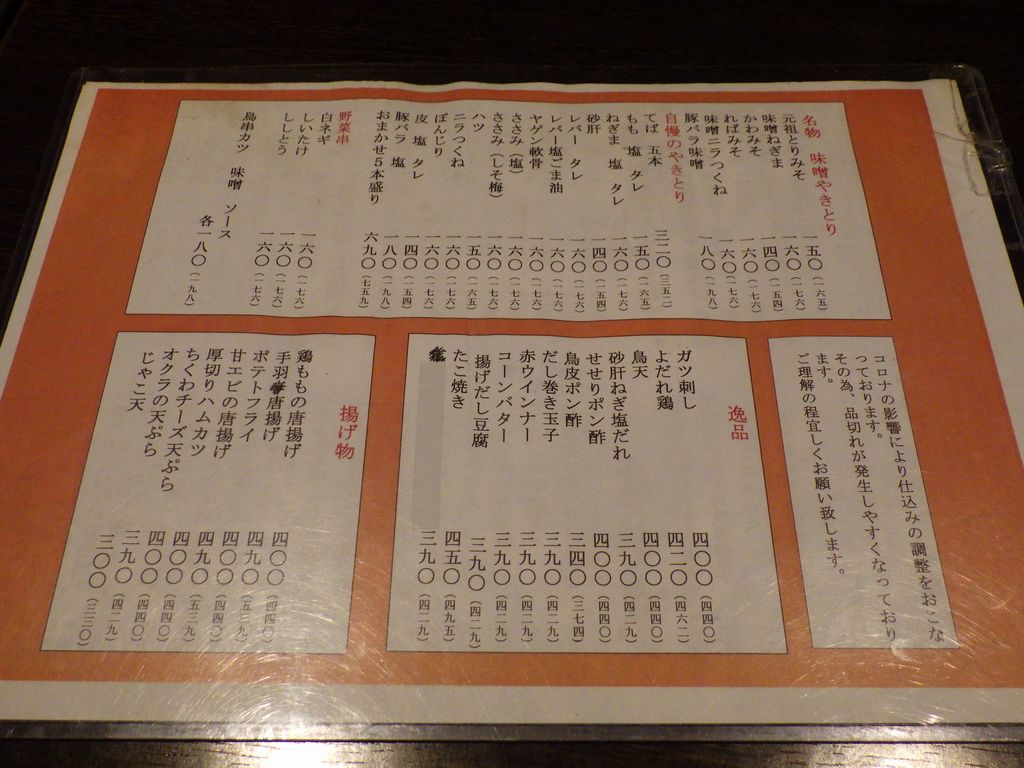 名物 味噌やきとり
元祖とりみそ 一五〇(一六五)
味噌ねぎま 一六〇(一七六)
かわみそ 一四〇(一五四)
ればみそ 一六〇(一七六)
味噌ニラつくね 一六〇(一七六)
豚バラ味噌 一八〇(一九八)
自慢のやきとり
てば 五本 三二〇(三五二)
もも 塩 タレ 一五〇(一六五)
ねぎま 塩 タレ 一六〇(一七六)
砂肝 一四〇(一五四)
レバー タレ 一六〇(一七六)
レバー塩ごま油 一六〇(一七六)
ヤゲン軟骨 一六〇(一七六)
ささみ(塩) 一六〇(一七六)
ささみ(しそ梅) 一六〇(一七六)
ハツ 一五〇(一六五)
ニラつくね 一六〇(一七六)
ぼんじり 一六〇(一七六)
皮 塩 タレ 一四〇(一五四)
豚バラ 塩 一八〇(一九八)
おまかせ5本盛り 六九〇(七五九)
野菜串
白ネギ 一六〇(一七六)
しいたけ 一六〇(一七六)
ししとう 一六〇(一七六)
鳥串カツ 味噌 ソース 各一八〇(一九八)
コロナの影響により仕込みの調整をおこな
っております。
その為、品切れが発生しやすくなっており
ます。
ご理解の程宜しくお願い致します。
逸品
ガツ刺し 四〇〇(四四〇)
よだれ鶏 四二〇(四六二)
鳥天 四〇〇(四四〇)
砂肝ねぎ塩だれ 三九〇(四二九)
せせりポン酢 四〇〇(四四〇)
鳥皮ポン酢 三四〇(三七四)
だし巻き玉子 三九〇(四二九)
赤ウインナー 三九〇(四二九)
コーンバター 三九〇(四二九)
揚げだし豆腐 三九〇(四二九)
たこ焼き 四五〇(四九五)
三九〇(四二九)
揚げ物
鶏ももの唐揚げ 四〇〇(四四〇)
手羽唐揚げ 四九〇(五三九)
ポテトフライ 四〇〇(四四〇)
甘エビの唐揚げ 四九〇(五三九)
厚切りハムカツ 四〇〇(四四〇)
ちくわチーズ天ぷら 四〇〇(四四〇)
オクラの天ぷら 三九〇(四二九)
じゃこ天 三〇〇(三三〇)